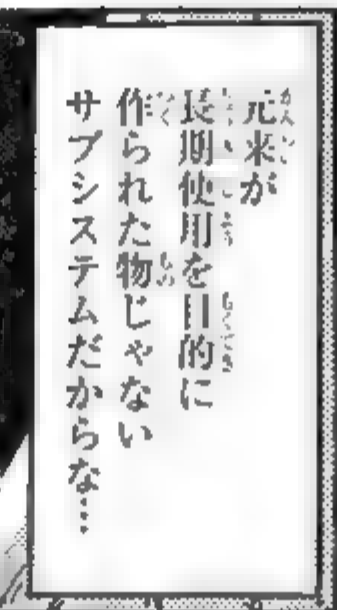 元来が
長期使用を目的に
作られた物じゃない
サブシステムだからな…